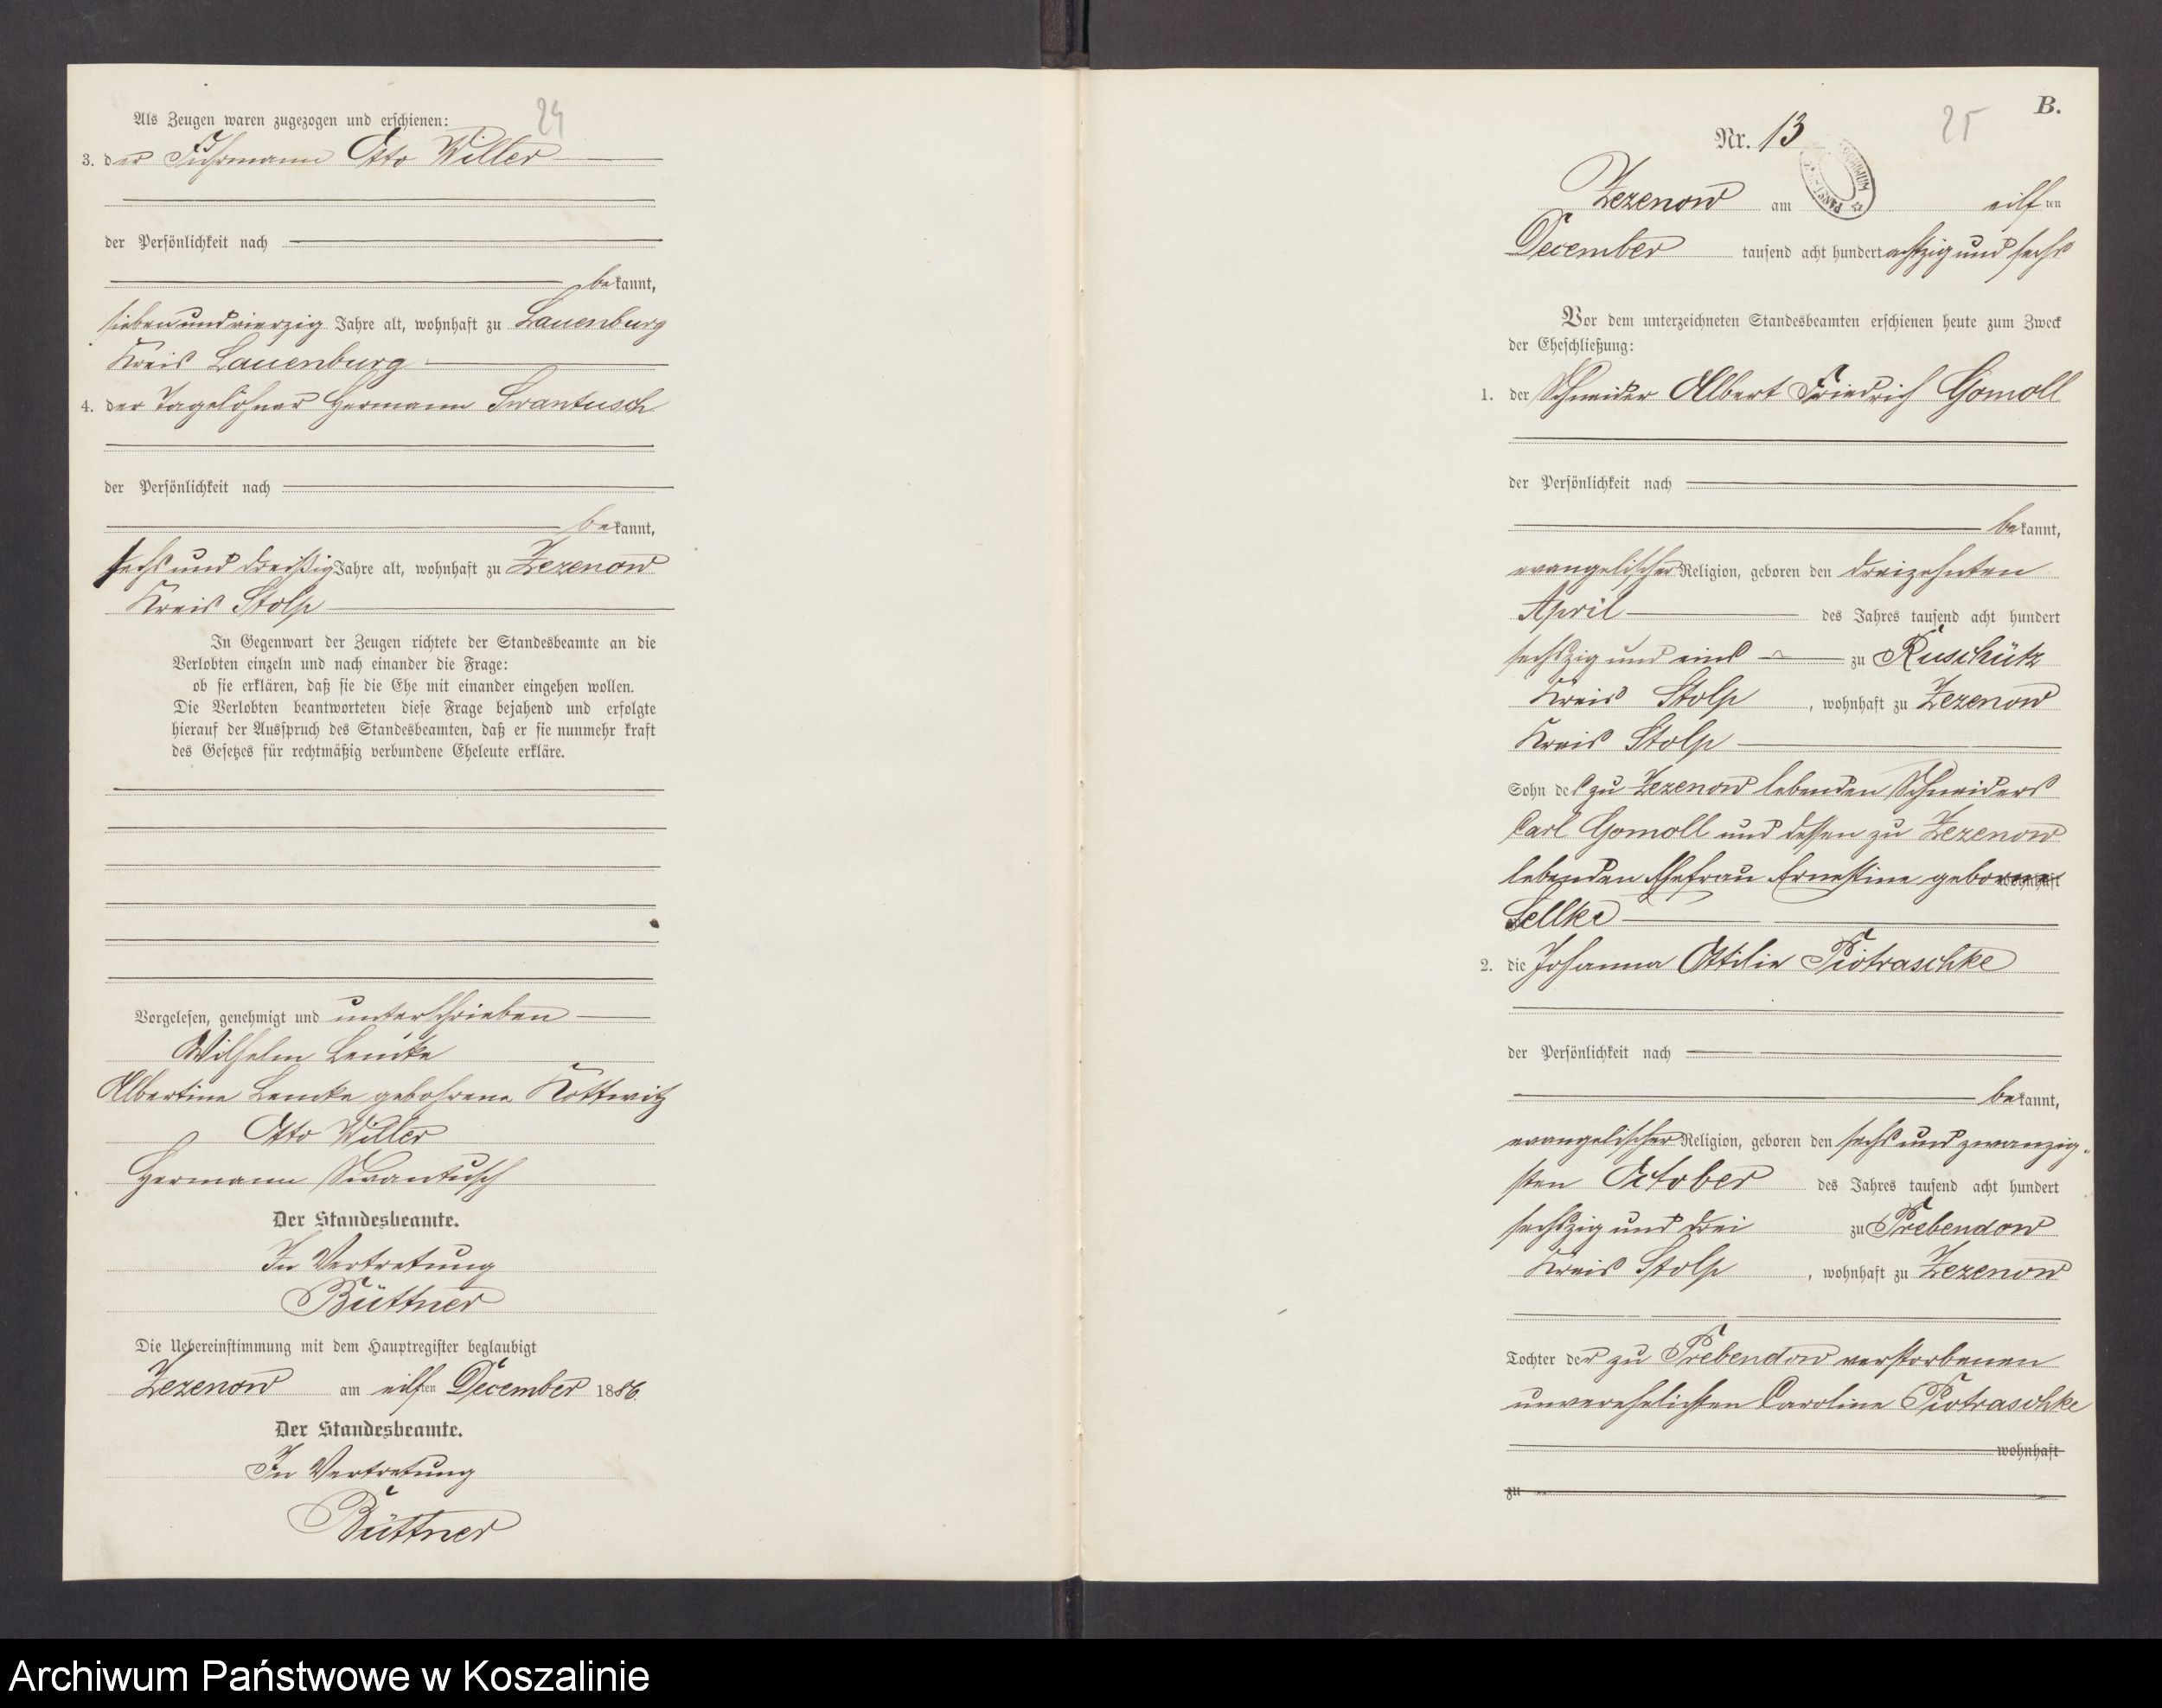 24
Als Zeugen waren zugezogen und erschienen:
3. der Fuhrmann Otto Willer
der Persönlichkeit nach
bekannt,
sieben und vierzig Jahre alt, wohnhaft zu Lauenburg
Kreis Lauenburg
4. der Tagelöhner Hermann Swantusch
der Persönlichkeit nach
bekannt,
sechs und dreißig Jahre alt, wohnhaft zu Zezenow
Kreis Stolp
In Gegenwart der Zeugen richtete der Standesbeamte an die
Verlobten einzeln und nach einander die Frage:
ob sie erklären, daß sie die Ehe mit einander eingehen wollen.
Die Verlobten beantworteten diese Frage bejahend und erfolgte
hierauf der Ausspruch des Standesbeamten, daß er sie nunmehr kraft
des Gesetzes für rechtmäßig verbundene Eheleute erkläre.
Vorgelesen, genehmigt und unterschrieben
Wilhelm Lemke
Albertine Lemke gebohrene Kottwitz
Otto Willer
Hermann Swantusch
Der Standesbeamte.
In Vertretung
Büttner
Die Uebereinstimmung mit dem Hauptregister beglaubigt
Zezenow am eilften December 1886.
Der Standesbeamte.
In Vertretung
Büttner
B.
25
Nr. 13
Zezenow am eilften
December tausend acht hundert achtzig und sechs
Vor dem unterzeichneten Standesbeamten erschienen heute zum Zweck
der Eheschließung:
1. der Schneider Albert Friedrich Gomoll
der Persönlichkeit nach
bekannt,
evangelischer Religion, geboren den dreizehnten
April des Jahres tausend acht hundert
sechszig und eins zu Ruschütz
Kreis Stolp, wohnhaft zu Zezenow
Kreis Stolp
Sohn des zu Zezenow lebenden Schneiders
Carl Gomoll und dessen zu Zezenow
lebenden Ehefrau Ernestine geborene wohnhaft
Sellke
2. die Johanna Ottilie Piotraschke
der Persönlichkeit nach
bekannt,
evangelischer Religion, geboren den sechs und zwanzig-
sten October des Jahres tausend acht hundert
sechszig und drei zu Prebendow
Kreis Stolp, wohnhaft zu Zezenow
Tochter der zu Prebendow verstorbenen
unverehelichten Caroline Piotraschke
wohnhaft
zu
Archiwum Państwowe w Koszalinie